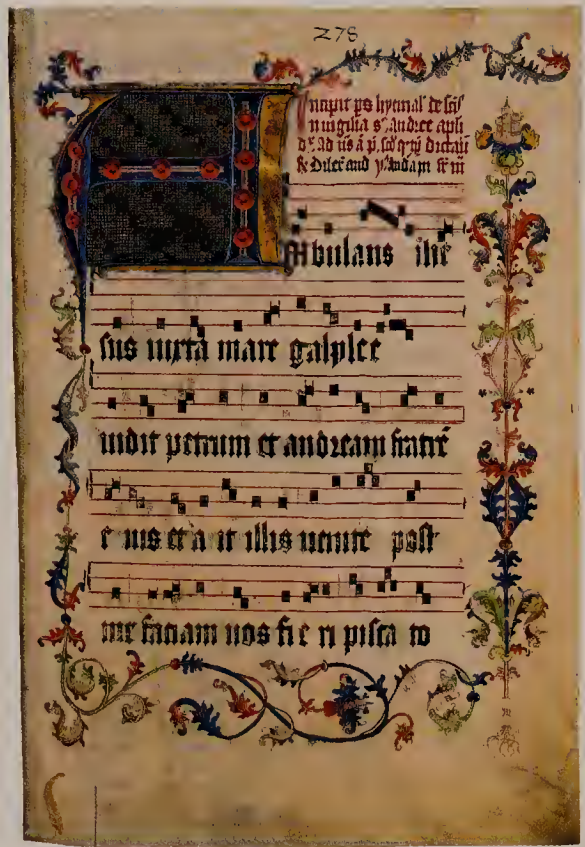 278
Incipit ps hyemal' de scīs
in uigilia s' andree apli
ad
A
mbulans ihe
sus iuxta mare galylee
uidit petrum et andream fratrē
e ius et a it illis uenite post
me faciam uos fi e ri pisca to